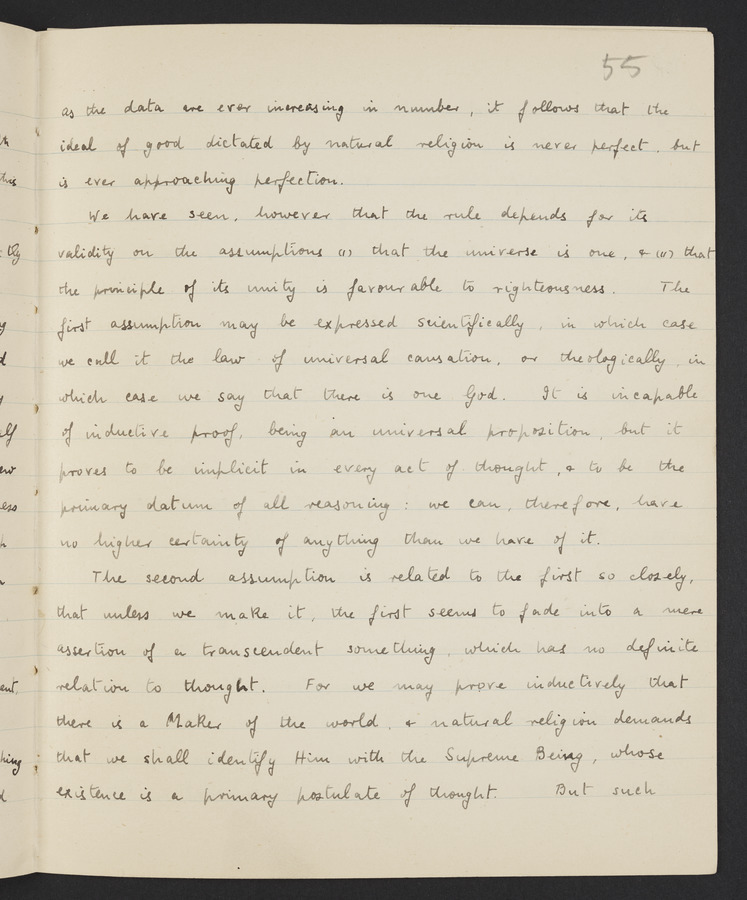 55
as the data are ever increasing in number, it follows that the
ideal of good dictated by natural religion is never perfect, but
is ever approaching perfection.
We have seen, however that the rule depends for its
validity on the assumptions (i) that the universe is one, & (ii) that
the principle of its unity is favourable to righteousness. The
first assumption may be expressed scientifically, in which case
we call it the law of universal causation, or theologically, in
which case we say that there is one God. It is incapable
of inductive proof, being an universal proposition, but it
proves to be implicit in every act of thought, & to be the
primary datum of all reasoning: we can, therefore, have
no higher certainty of anything than we have of it.
The second assumption is related to the first so closely,
that unless we make it, the first seems to fade into a mere
assertion of a transcendent something, which has no definite
relation to thought. For we may prove inductively that
there is a Maker of the world, & natural religion demands
that we shall identify Him with the Supreme Being, whose
existence is a primary postulate of thought. But such